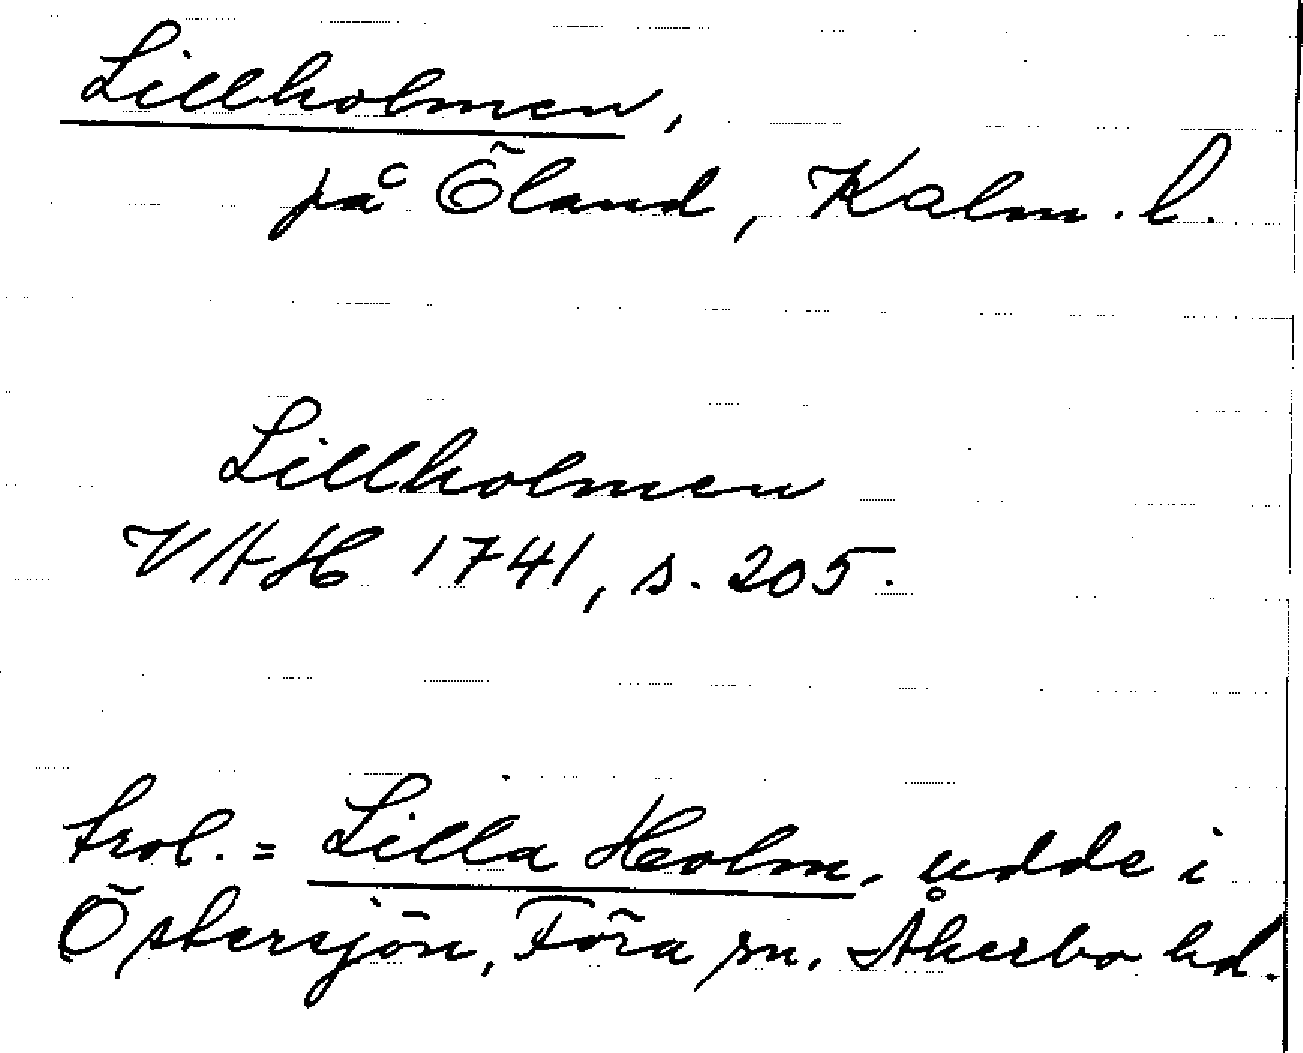 Lillholmen,
på Öland, Kalm. l.
Lillholmen
VAH 1741, s. 205.
trol. = Lilla Holm, udde i
Östersjön, Föra sn, Åkerbo hd.